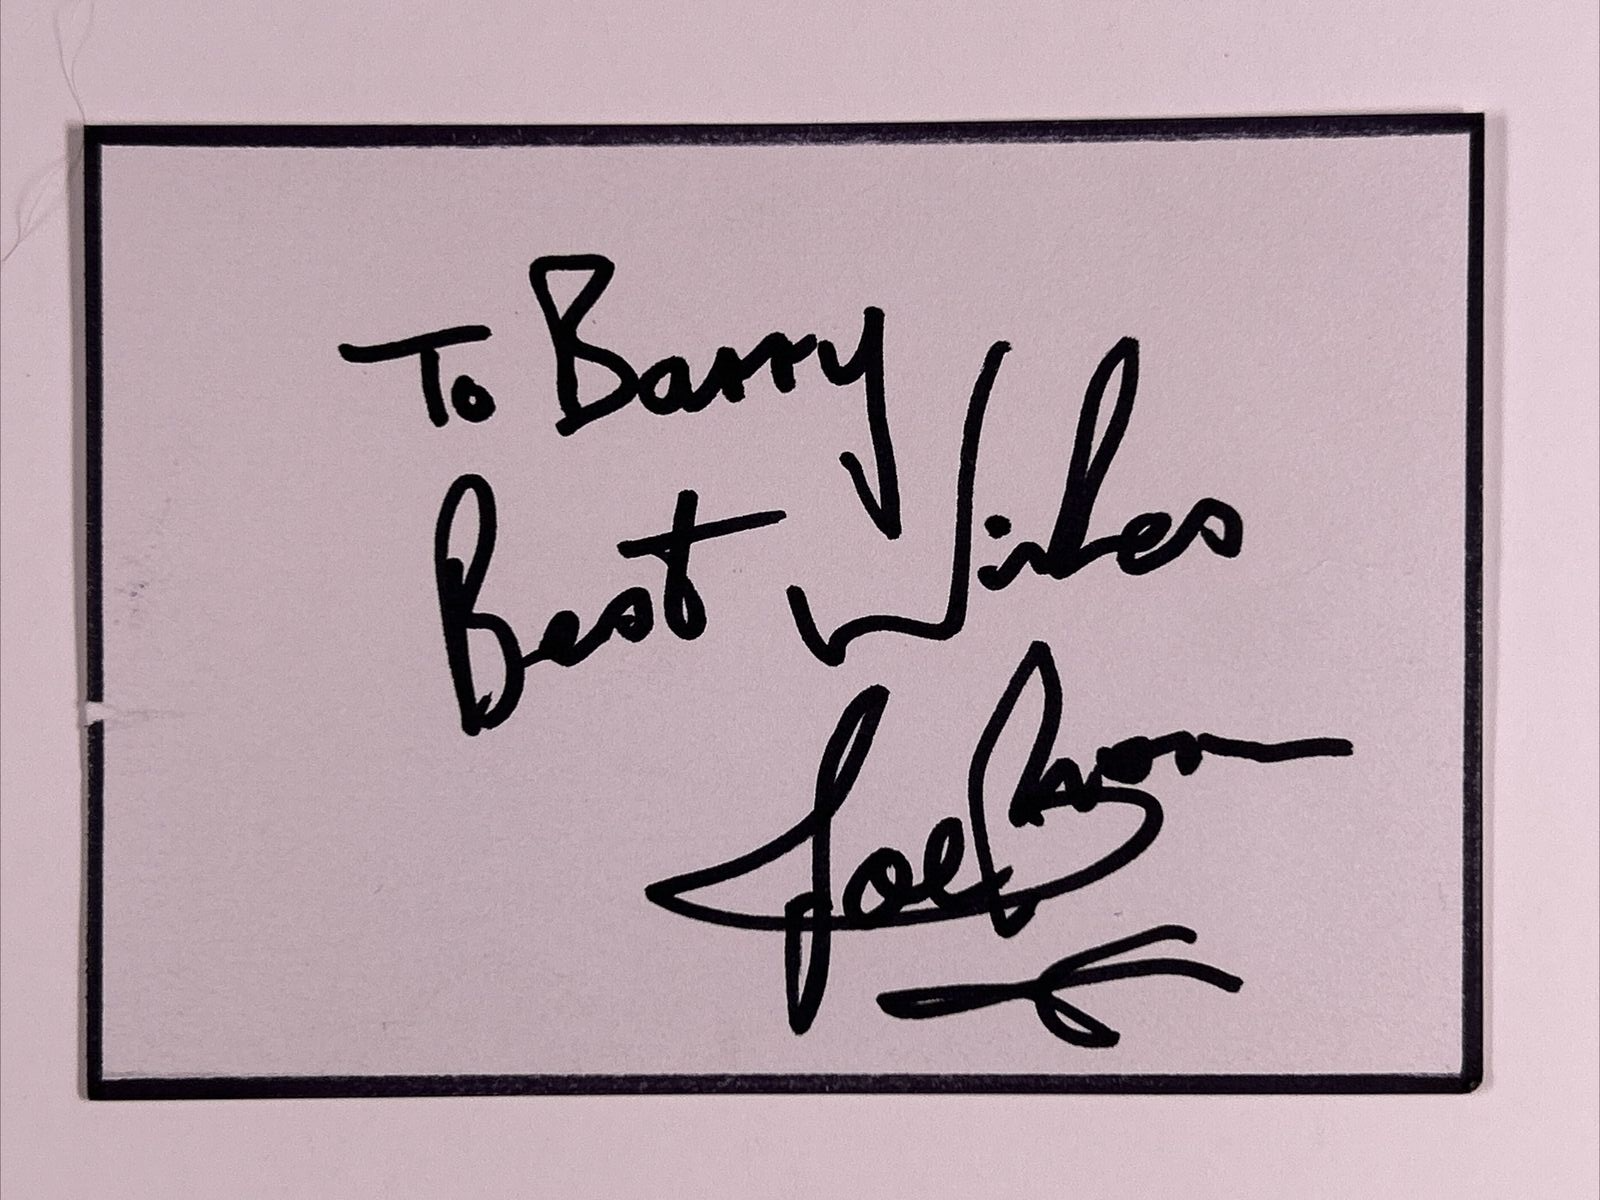 To Barry
Best Wishes
Joe Brown